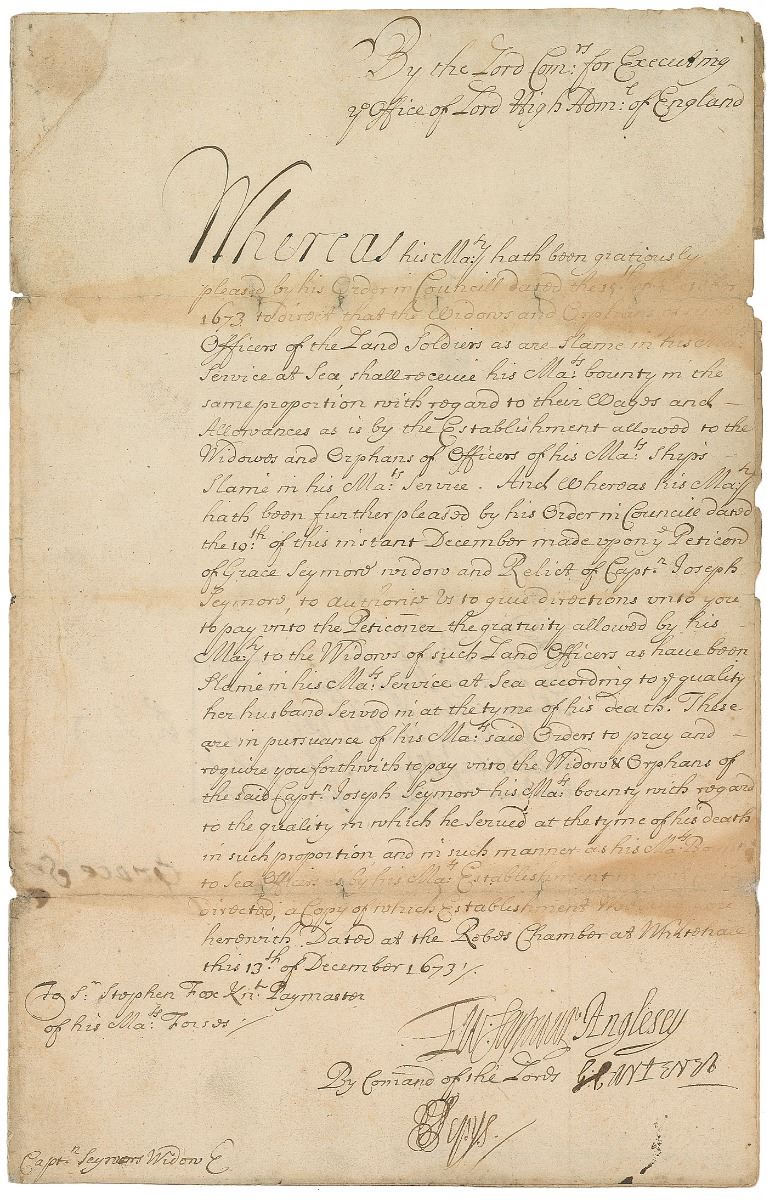 By the Lord Com:rs for Executing
ye Office of Lord High Adm:ll of England
Whereas his Ma:ty hath been gratiously
pleased by his Order in Councill dated the
1673 to direct that the Widows and Orphans
Officers of the Land Soldiers as are slaine in his Ma:ts
Service at Sea, shall receive his Ma:ts bounty in the
same proportion with regard to their Wages and –
Allowances as is by the Establishment allowed to the
Widowes and Orphans of Officers of his Ma:ts Ships –
slaine in his Ma:ts Service. And Whereas his Ma:ty
hath been further pleased by his Order in Councill dated
the 10:th of this instant December made upon ye Peticon
of Grace Seymore widow and Relict of Capt:n Joseph
Seymore, to authorise Us to give directions unto you
to pay unto the Peticoner the gratuity allowed by his –
Ma:ty to the Widows of such Land Officers as have been
slaine in his Ma:ts Service at Sea according to ye quality
her husband served in at the tyme of his death. These
are in pursuance of his Ma:ts said Orders to pray and –
require you forthwith to pay unto the Widow & Orphans of
the said Capt:n Joseph Seymore his Ma:ts bounty with regard
to the quality in which he served at the tyme of his death
in such proportion and in such manner as his Ma:ts Bounty
to Sea Officers is by his Ma:ts Establishment
directed, a Copy of which Establishment
herewith. Dated at the Robes Chamber at Whitehall
this 13:th of December 1673 /.
To S:r Stephen Fox Kn:t Paymaster
of his Ma:ts Forses /
Anglesey
By Comand of the Lords G Carteret
SPepys. /
Capt:n Seymors Widow
Grace